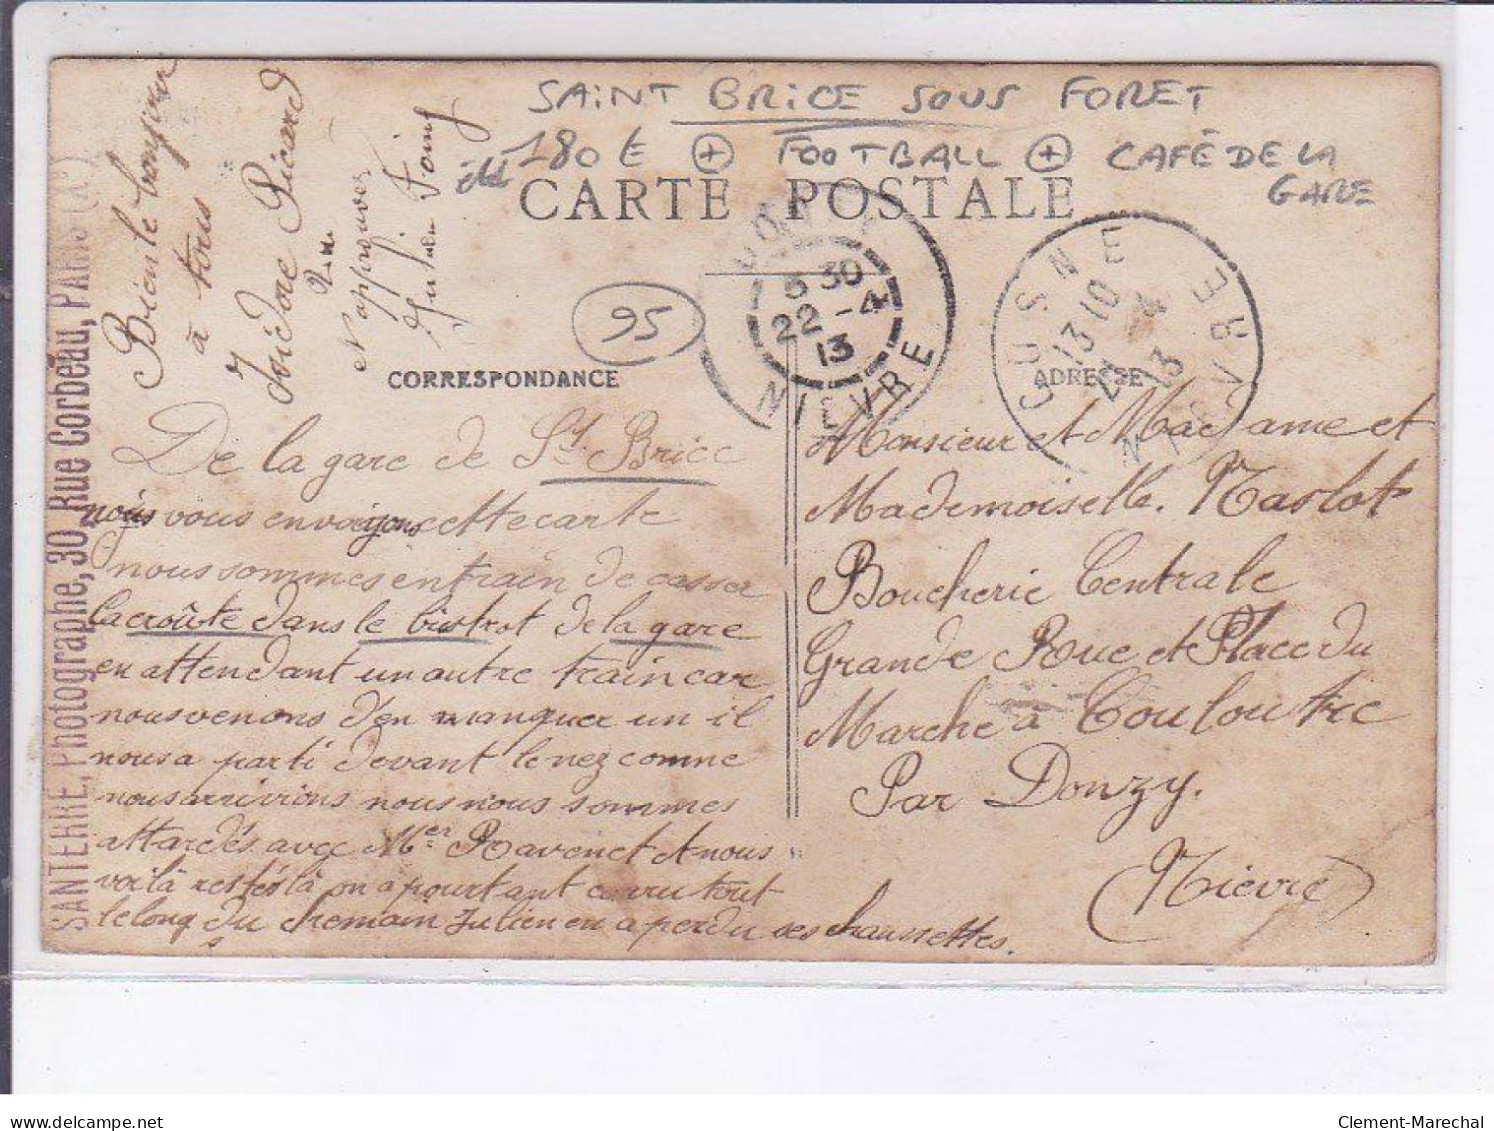 SAINT BRICE SOUS FORET
180 € + FOOTBALL + CAFÉ DE LA
GARE
CARTE POSTALE
95
SANTERRE, Photographe, 30, Rue Corbeau, PARIS
Bien le bonjour
à tous
Isidore Picard
N approuvez
Julien Foing
CORRESPONDANCE
De la gare de St. Brice
nous vous envoyons cette carte
nous sommes en train de casser
la croûte dans le bistrot de la gare
en attendant un autre train car
nous venons d'en manquer un il
nous a parti devant le nez comme
nous arrivions nous nous sommes
attardés avec Mer Ravenet et nous
voilà restés là on a pourtant couru tout
le long du chemain Julien en a perdu ses chaussettes.
5 30
22 - 4
13
NIEVRE
COSNE
13 10
4
13
NIEVRE
ADRESSE
Monsieur et Madame et
Mademoiselle. Naslot
Boucherie Centrale
Grande Roue et Place du
Marche à Couloutre
Par Donzy.
(Nièvre)
Clement-Marechal
delcampe.net